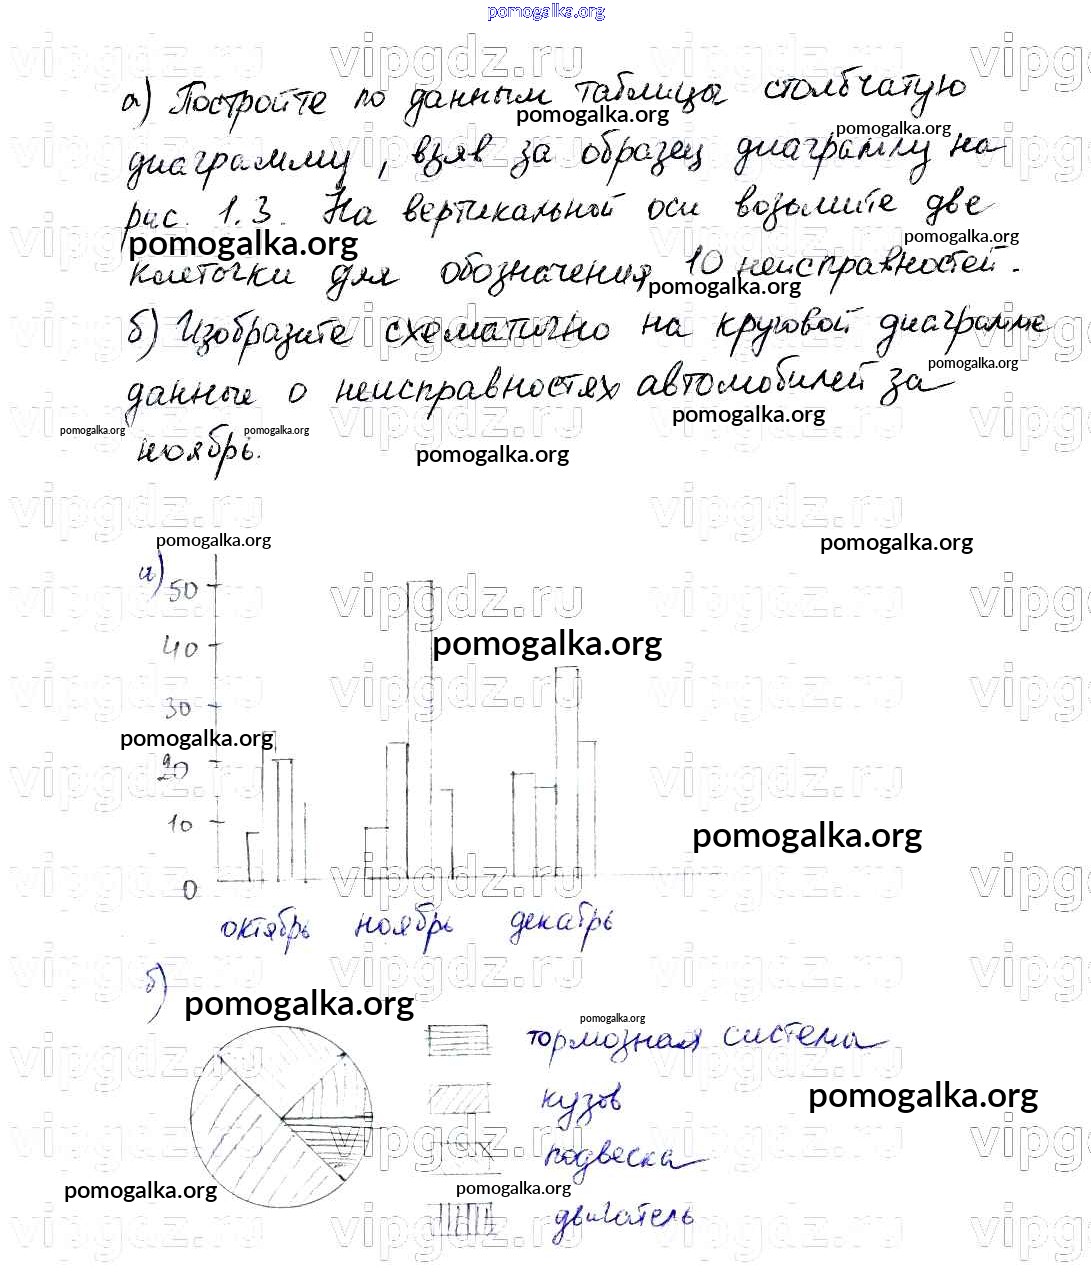 pomogalka.org
а) Постройте по данным таблицы столбчатую
диаграмму, взяв за образец диаграмму на
рис. 1.3. На вертикальной оси возьмите две
клеточки для обозначения 10 неисправностей.
б) Изобразите схематично на круговой диаграмме
данные о неисправностях автомобилей за
ноябрь.
а)
50
40
30
20
10
0
октябрь ноябрь декабрь
б)
тормозная система
кузов
подвеска
двигатель
vipgdz.ru